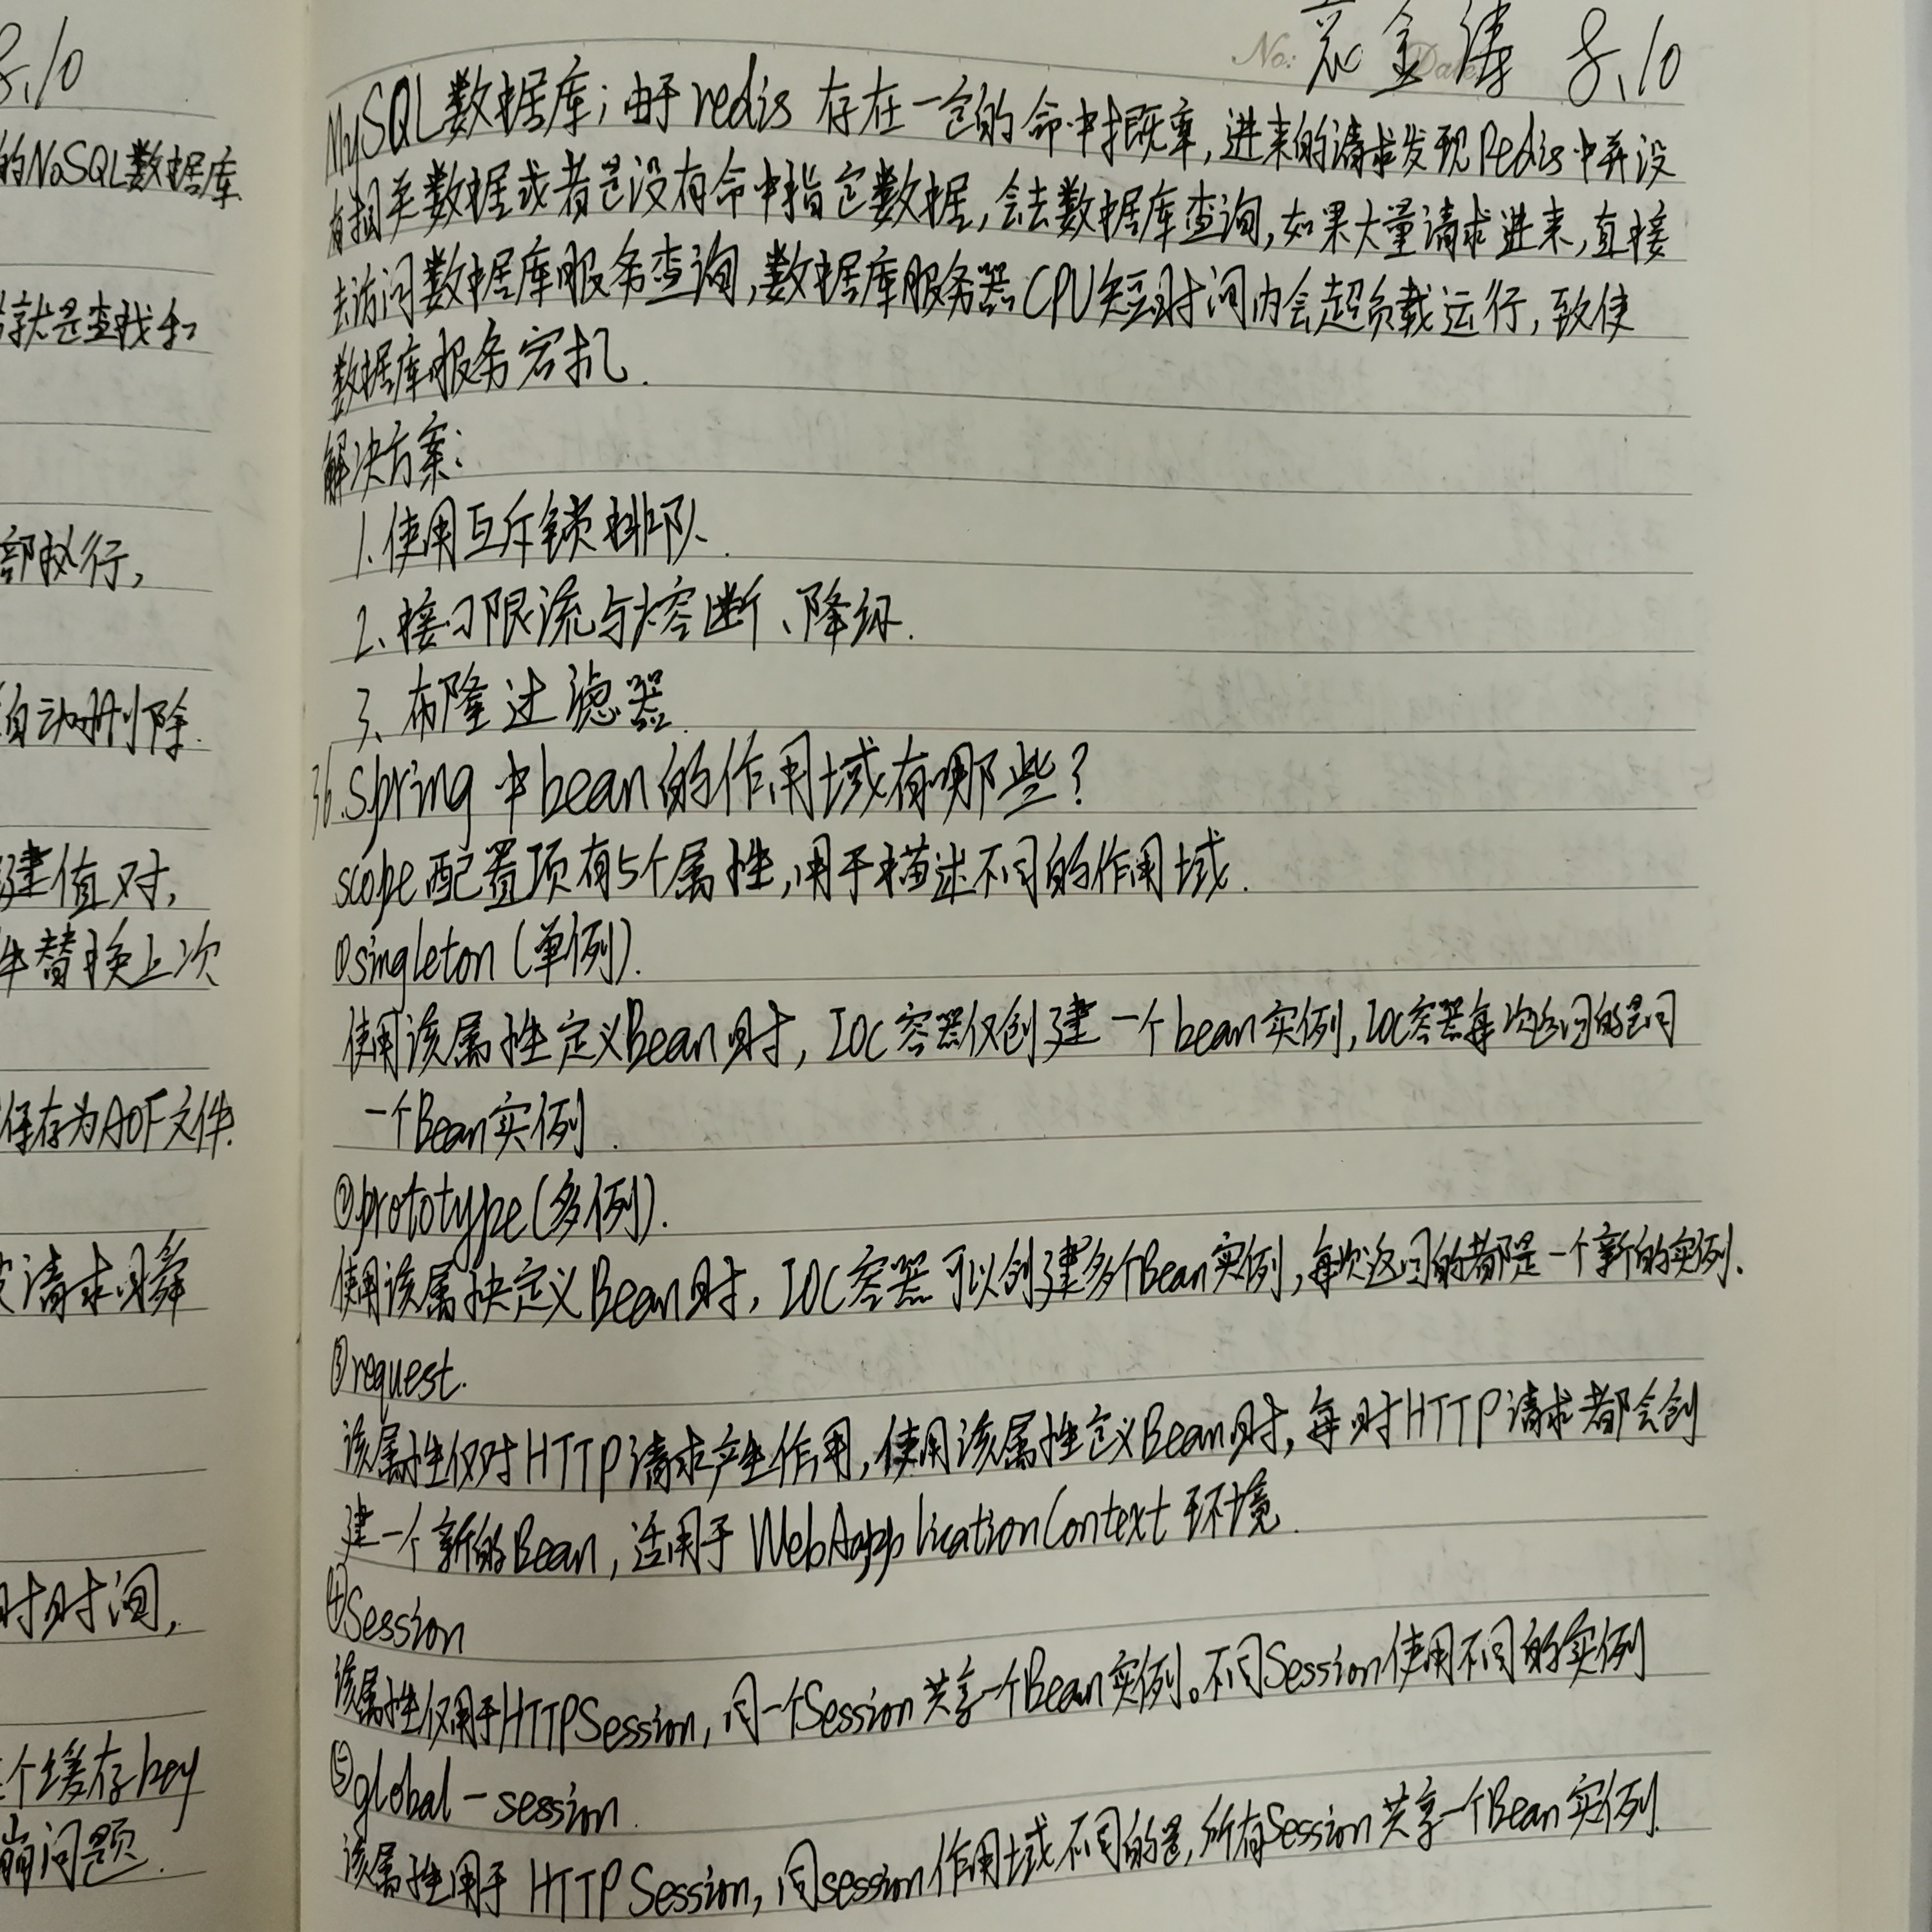 8.10
的NoSQL数据库
就是查找和
部执行,
自动删除.
建值对,
件替换上次
保存为AOF文件.
请求瞬
时时间,
个缓存key
崩问题.
No: Date 金涛 8.10
MySQL数据库;由于redis 存在一定的命中概率,进来的请求发现Redis中并没
有相关数据或者是没有命中指定数据,会去数据库查询,如果大量请求进来,直接
去访问数据库服务查询,数据库服务器CPU短时间内会超负载运行,致使
数据库服务宕机.
解决方案:
1.使用互斥锁排队.
2、接口限流与熔断、降级.
3、布隆过滤器.
36.Spring 中bean的作用域有哪些?
scope配置项有5个属性,用于描述不同的作用域.
①singleton(单例).
使用该属性定义Bean时, IOC容器仅创建一个bean实例,IOC容器每次返回的是同
一个Bean实例.
②prototype(多例).
使用该属性定义Bean时, IOC容器可以创建多个Bean实例,每次返回的都是一个新的实例.
③request.
该属性仅对HTTP请求产生作用,使用该属性定义Bean时,每时HTTP请求都会创
建一个新的Bean,适用于 WebApplicationContext 环境.
④Session
该属性仅用于HTTPSession,同一个Session共享一个Bean实例。不同Session使用不同的实例
⑤global-session.
该属性用于 HTTP Session,同session作用域不同的是,所有Session共享一个Bean实例.